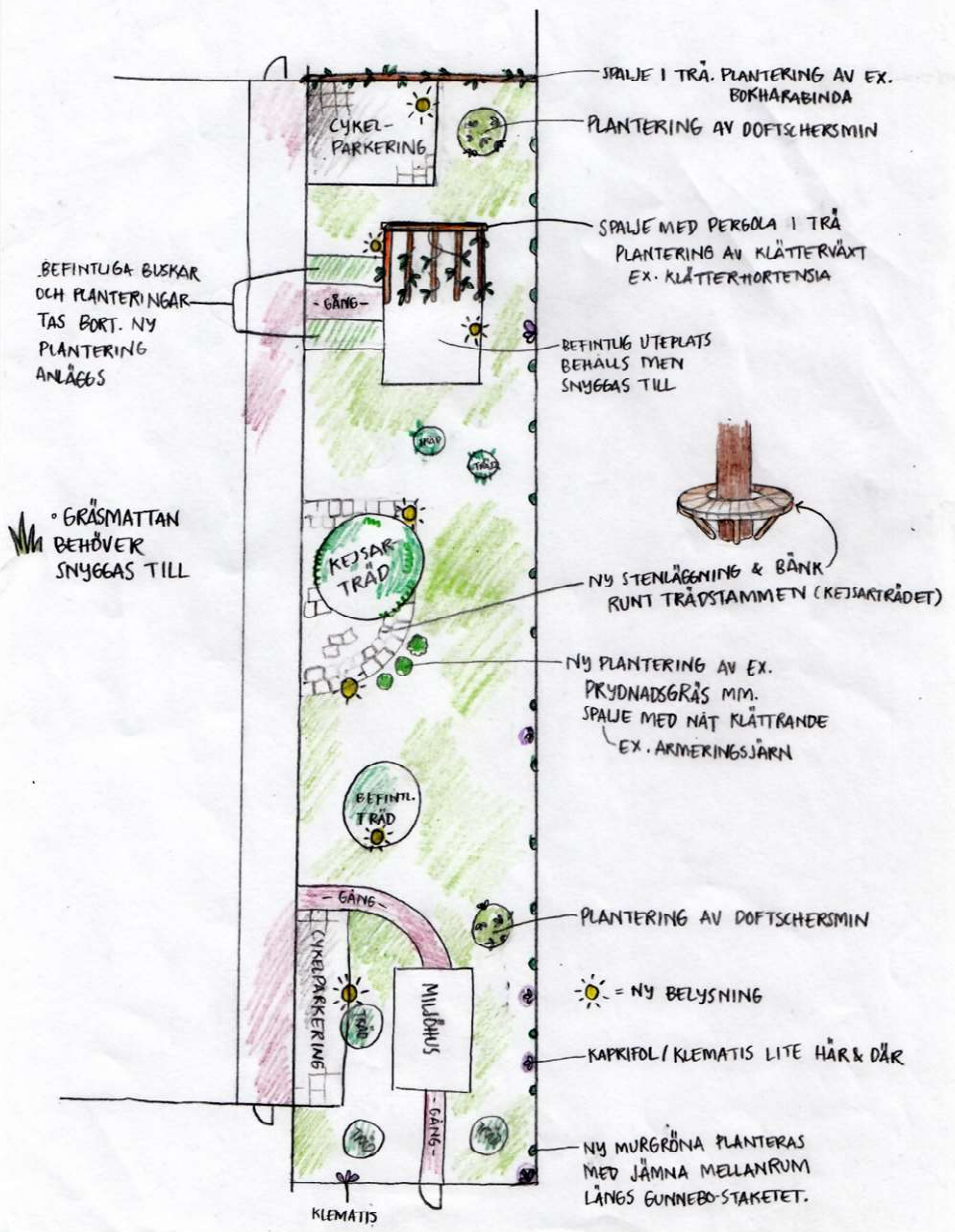 SPALJE I TRÄ. PLANTERING AV EX.
BOKHARABINDA
PLANTERING AV DOFTSCHERSMIN
CYKEL-
PARKERING
SPALJE MED PERGOLA I TRÄ
PLANTERING AV KLÄTTERVÄXT
EX. KLÄTTERHORTENSIA
BEFINTLIGA BUSKAR
OCH PLANTERINGAR
TAS BORT. NY
PLANTERING
ANLÄGGS
- GÅNG -
BEFINTLIG UTEPLATS
BEHÅLLS MEN
SNYGGAS TILL
TRÄD
TRÄD
° GRÄSMATTAN
BEHÖVER
SNYGGAS TILL
KEJSAR-
TRÄD
NY STENLÄGGNING & BÄNK
RUNT TRÄDSTAMMEN (KEJSARTRÄDET)
NY PLANTERING AV EX.
PRYDNADSGRÄS MM.
SPALJE MED NÄT KLÄTTRANDE
EX. ARMERINGSJÄRN
BEFINTL.
TRÄD
- GÅNG -
PLANTERING AV DOFTSCHERSMIN
CYKELPARKERING
TRÄD
MILJÖHUS
= NY BELYSNING
KAPRIFOL/KLEMATIS LITE HÄR & DÄR
- GÅNG -
TRÄD
TRÄD
NY MURGRÖNA PLANTERAS
MED JÄMNA MELLANRUM
LÄNGS GUNNEBO-STAKETET.
KLEMATIS